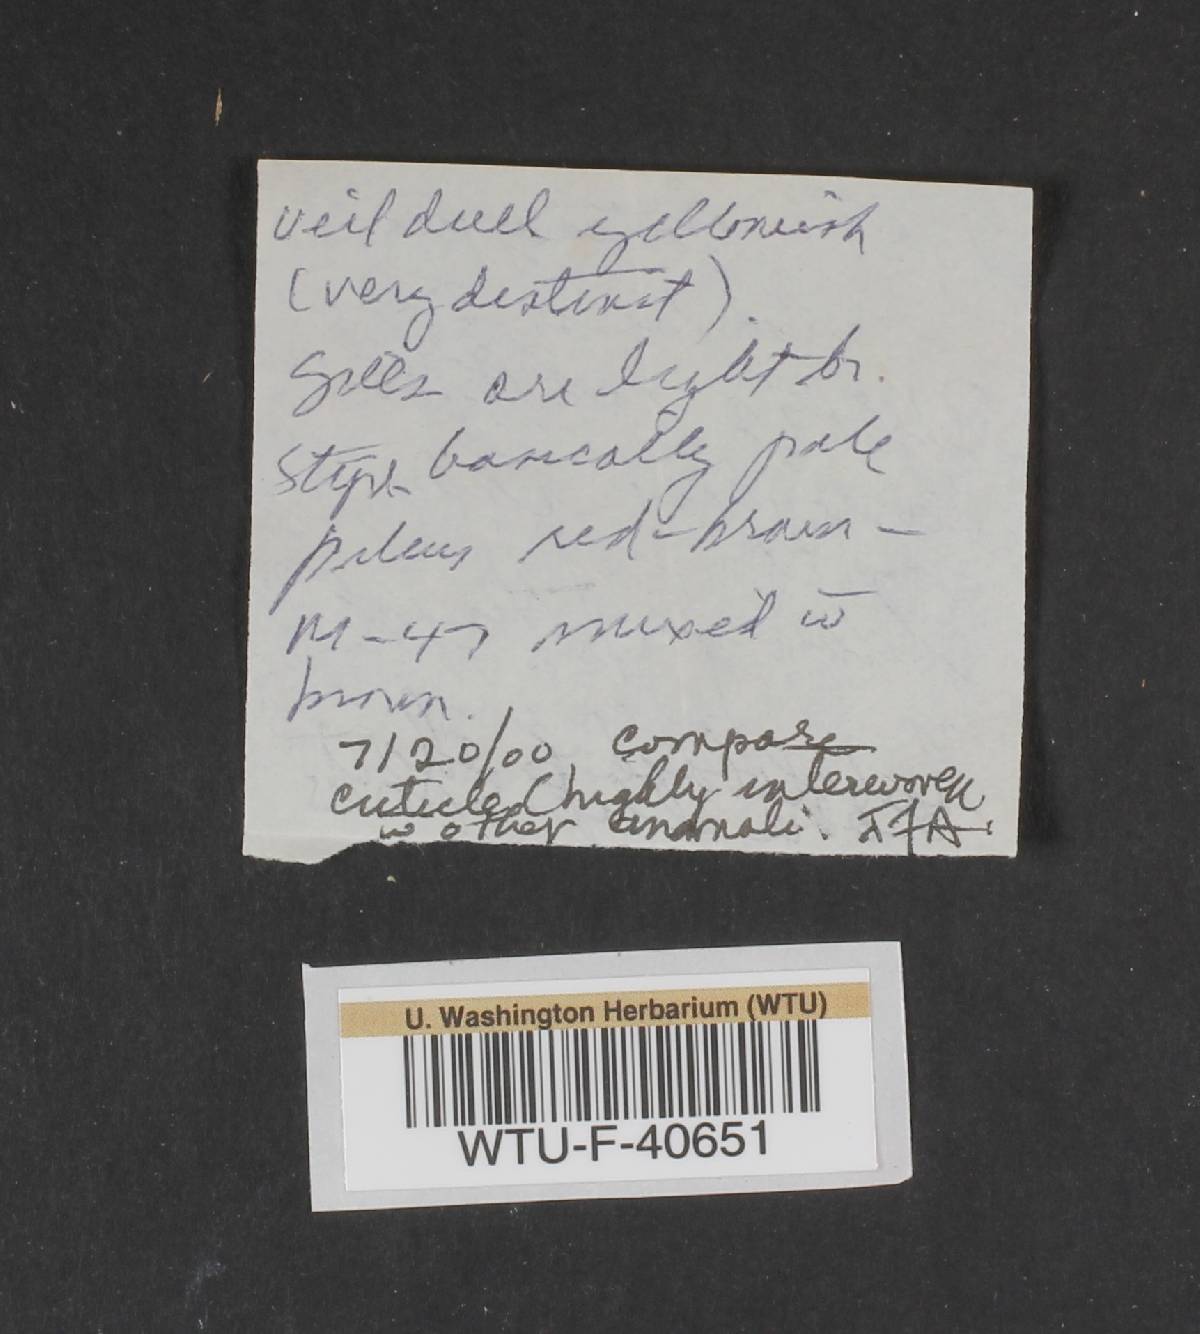 veil dull yellowish
(very distinct).
Gills are light br.
Stipe basically pale
pileus red-brown –
M-47 mixed w̄
brown.
7/20/00 compare
cuticle (highly interwoven
w other anomali.
U. Washington Herbarium (WTU)
WTU-F-40651